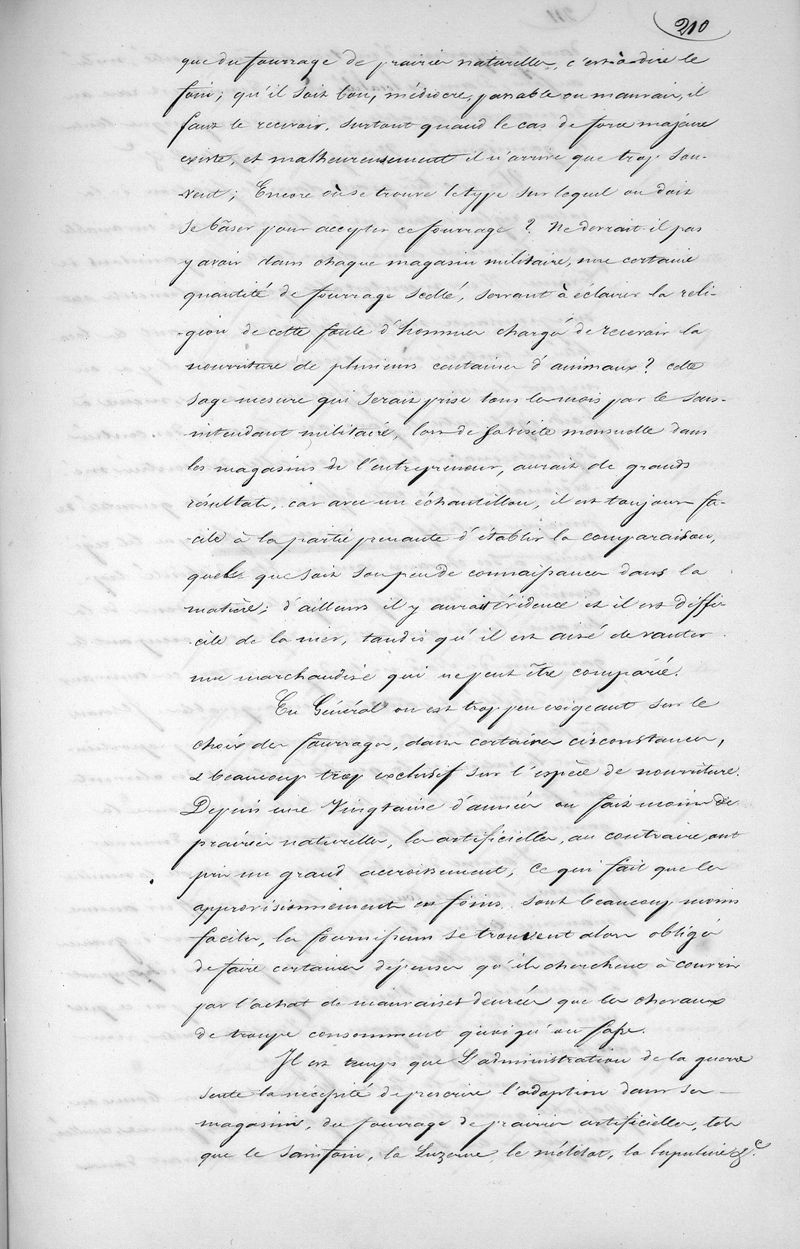 210
que du fourrage de prairies naturelles, c'est à dire le
foin; qu'il soit bon, médiocre, passable ou mauvais, il
faut le recevoir, surtout quand le cas de force majeure
existe, et malheureusement il n'arrive que trop sou-
vent; Encore où se trouve le type sur lequel on doit
se bâser pour accepter ce fourrage ? Ne devrait-il pas
y avoir dans chaque magasin militaire, une certaine
quantité de fourrage scellé, servant à éclairer la reli-
-gion de cette foule d'hommes chargés de recevoir la
nourriture de plusieurs centaines d'animaux ? cette
sage mesure qui serait prise tous les mois par le sous-
intendant militaire, lors de sa visite mensuelle dans
les magasins de l'entrepreneur, aurait de grands
résultats, car avec un échantillon, il est toujours fa-
cile à la partie prenante d'établir la comparaison,
quelle que soit son peu de connaissances dans la
matière; d'ailleurs il y aurait évidence et il est diffi-
cile de la nier, tandis qu'il est aisé de vanter
une marchandise qui ne peut être comparée.
En Général on est trop peu exigeant sur le
choix des fourrages, dans certaines circonstances,
& beaucoup trop exclusif sur l'espèce de nourriture.
Depuis une Vingtaine d'années on fait moins de
prairies naturelles, les artificielles, au contraire, ont
pris un grand accroissement, ce qui fait que les
approvisionnement en foins sont beaucoup moins
faciles, les fournisseurs se trouvent alors obligés
de faire certaines dépenses qu'ils cherchent à couvrir
par l'achat de mauvaises denrées que les chevaux
de troupe consomment quoiqu'on fasse.
Il est temps que L'administration de la guerre
sente la nécessité de prescrire l'adoption dans ses
magasins, du fourrage de prairies artificielles, tels
que le sainfoin, la Luzerne, le mélilot, la lupuline &c.